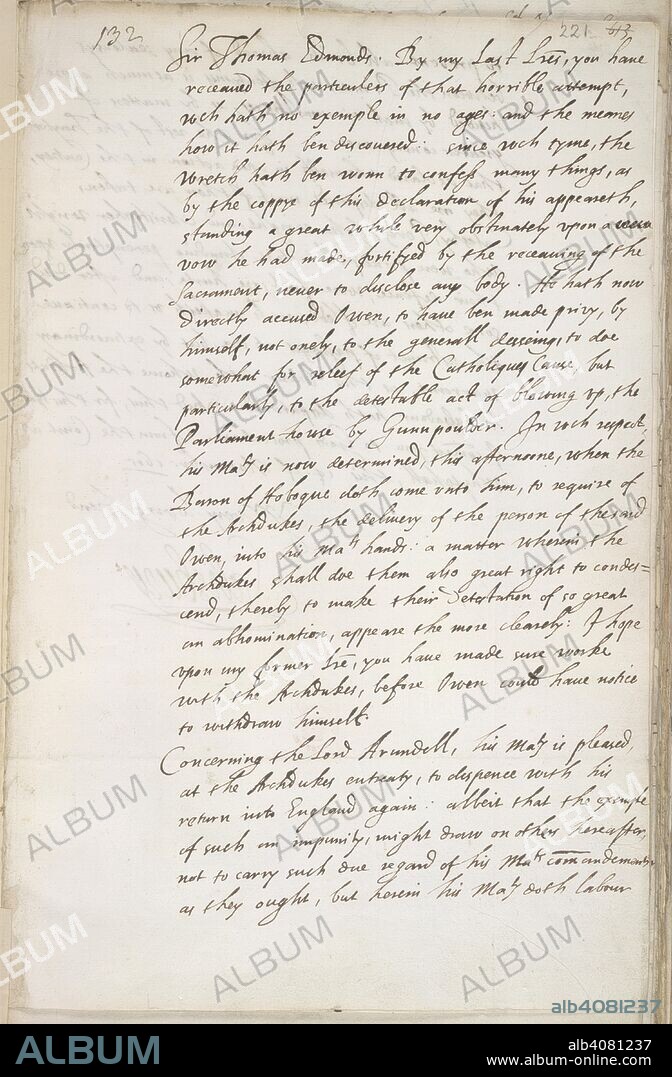 132
221
Sir Thomas Edmonds. By my Last Lr̃es, you have
receaved the particulers of that horrible attempt,
wch hath no exemple in no ages: and the meanes
how it hath ben discovered: since wch tyme, the
wretch hath ben wonn to confess many things, as
by the coppye of this declaration of his appeareth,
standing a great while very obstinately upon a
vow he had made, fortifyed by the receauing of the
Sacrament, never to disclose any body. He hath now
directly accused Owen, to have ben made privy, by
himself, not onely, to the generall desseing, to doe
somewhat for releef of the Catholiques Cause, but
particularly, to the detestable act of blowing vp, the
Parliament house by Gunnpoulder. In wch respect,
his Maty is now determined, this afternoone, when the
Baron of Hoboque doth come vnto him, to require of
the Archdukes, the delivery of the person of the said
Owen, into his Mats hands: a matter wherein the
Archdukes shall doe them also great right to condes=
cend, thereby to make their detestation of so great
an abhomination, appeare the more clearely: I hope
vpon my former Lr̃e, you have made sure worke
with the Archdukes, before Owen could have notice
to withdraw himself.
Concerning the Lord Arundell, his Maty is pleased,
at the Archdukes entreaty, to dispence with his
return into England again: albeit that the exemple
of such an impunity, might draw on others hereafter,
not to carry such due regard of his Mats com̃andements
as they ought, but herein his Maty doth labour
ALBUM
alb4081237
ALBUM
alb4081237
www.album-online.com